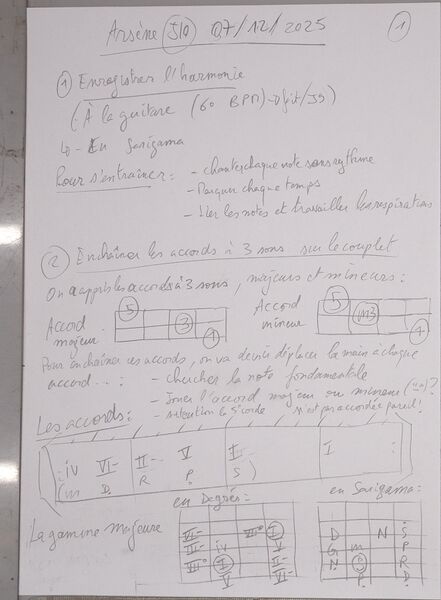 Arsène J10 07/12/2025 1
① Enregistrer l'harmonie
(- À la guitare (60 BPM)
↳ - En Sarigama
Pour s'entraîner : - chanter chaque note sans rythme
- Marquer chaque temps
- Lier les notes et travailler les respirations
② Enchaîner les accords à 3 sons sur le couplet
On a appris les accords à 3 sons, majeurs et mineurs :
Accord majeur 5 3 1
Accord mineur 5 m3 1
Pour enchaîner ces accords, on va devoir déplacer la main à chaque
accord... : - chercher la note fondamentale
- Jouer l'accord majeur ou mineur ("-")?
- attention la 5e corde n'est pas accordée pareil !
Les accords :
iv VI- II- V I I
(m D R P S)
en Degrés : en Sarigama :
La gamme majeure
VI- VII° I D N S
II- iv V G m P
III- I VI- N P R
V VI- P D